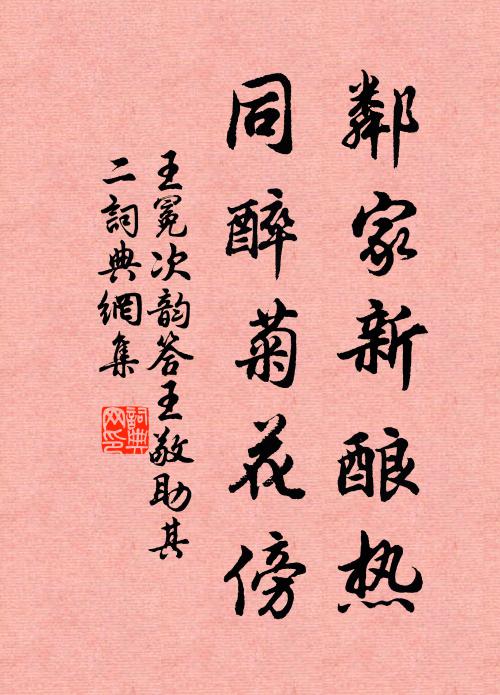 鄰家新酿热
同醉菊花傍
王冕次韵答王敬助其
二詞典網集
詞典网印